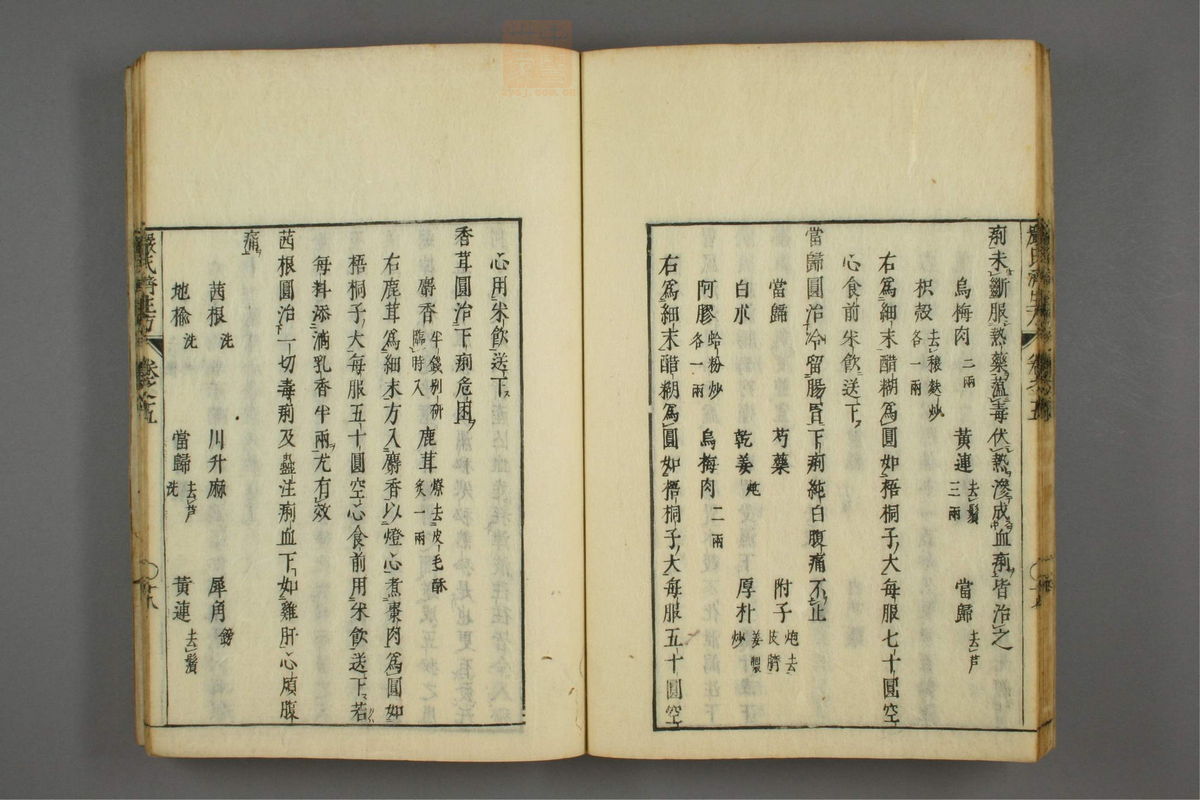 痢未斷服熱藥蓋毒伏熱滲成血痢皆治之
烏梅肉二兩 黃連去鬚三兩 當歸去芦
枳殼去穰麩炒各一兩
右爲細末醋糊爲圓如梧桐子大每服七十圓空
心食前米飲送下
當歸圓治冷留腸胃下痢純白腹痛不止
當歸 芍藥 附子炮去皮臍
白朮 乾姜炮 厚朴姜製炒
阿膠蛤粉炒各一兩 烏梅肉二兩
右爲細末醋糊爲圓如梧桐子大每服五十圓空
心用米飲送下
香茸圓治下痢危困
麝香半錢別研臨時入 鹿茸燎去皮毛酥炙一兩
右鹿茸爲細末方入麝香以燈心煮棗肉爲圓如
梧桐子大每服五十圓空心食前用米飲送下若
每料添滴乳香半兩尤有效
茜根圓治一切毒痢及蠱注痢血下如雞肝心煩腹
痛
茜根洗 川升麻 犀角鎊
地楡洗 當歸去芦洗 黃連去鬚
嚴氏濟生方 卷之五